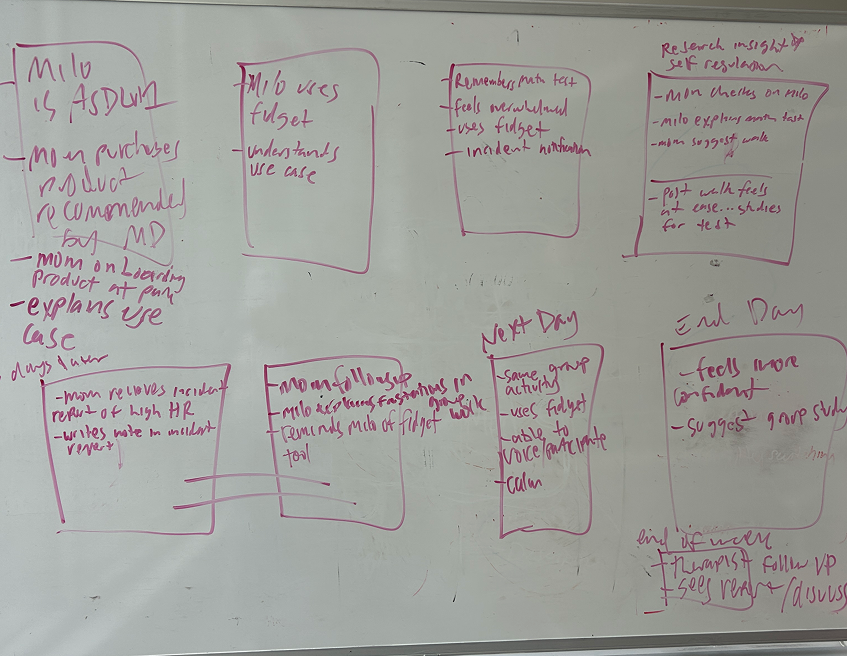 Milo
is ASD LVL1
- Mom purchases
product
recommended
by MD
- mom onboarding
product at park
- explans use
case
- Milo uses
fidget
- understands
use case
- Remembers math test
- feels overwhelmed
- uses fidget
- incident notification
Research insight of
self regulation
- mom checks on milo
- milo explains math test
- mom suggest walk
- post walk feels
at ease... studies
for test
days later
- mom recieves incident
report of high HR
- writes note in incident
report
- mom follows up
- Milo explains frustrations in
group work
- reminds milo of fidget
tool
Next Day
- same group
activity
- uses fidget
- able to
voice/participate
- calm
End Day
- feels more
confident
- suggest group study
end of week
- therapist follow up
- sees report/discuss